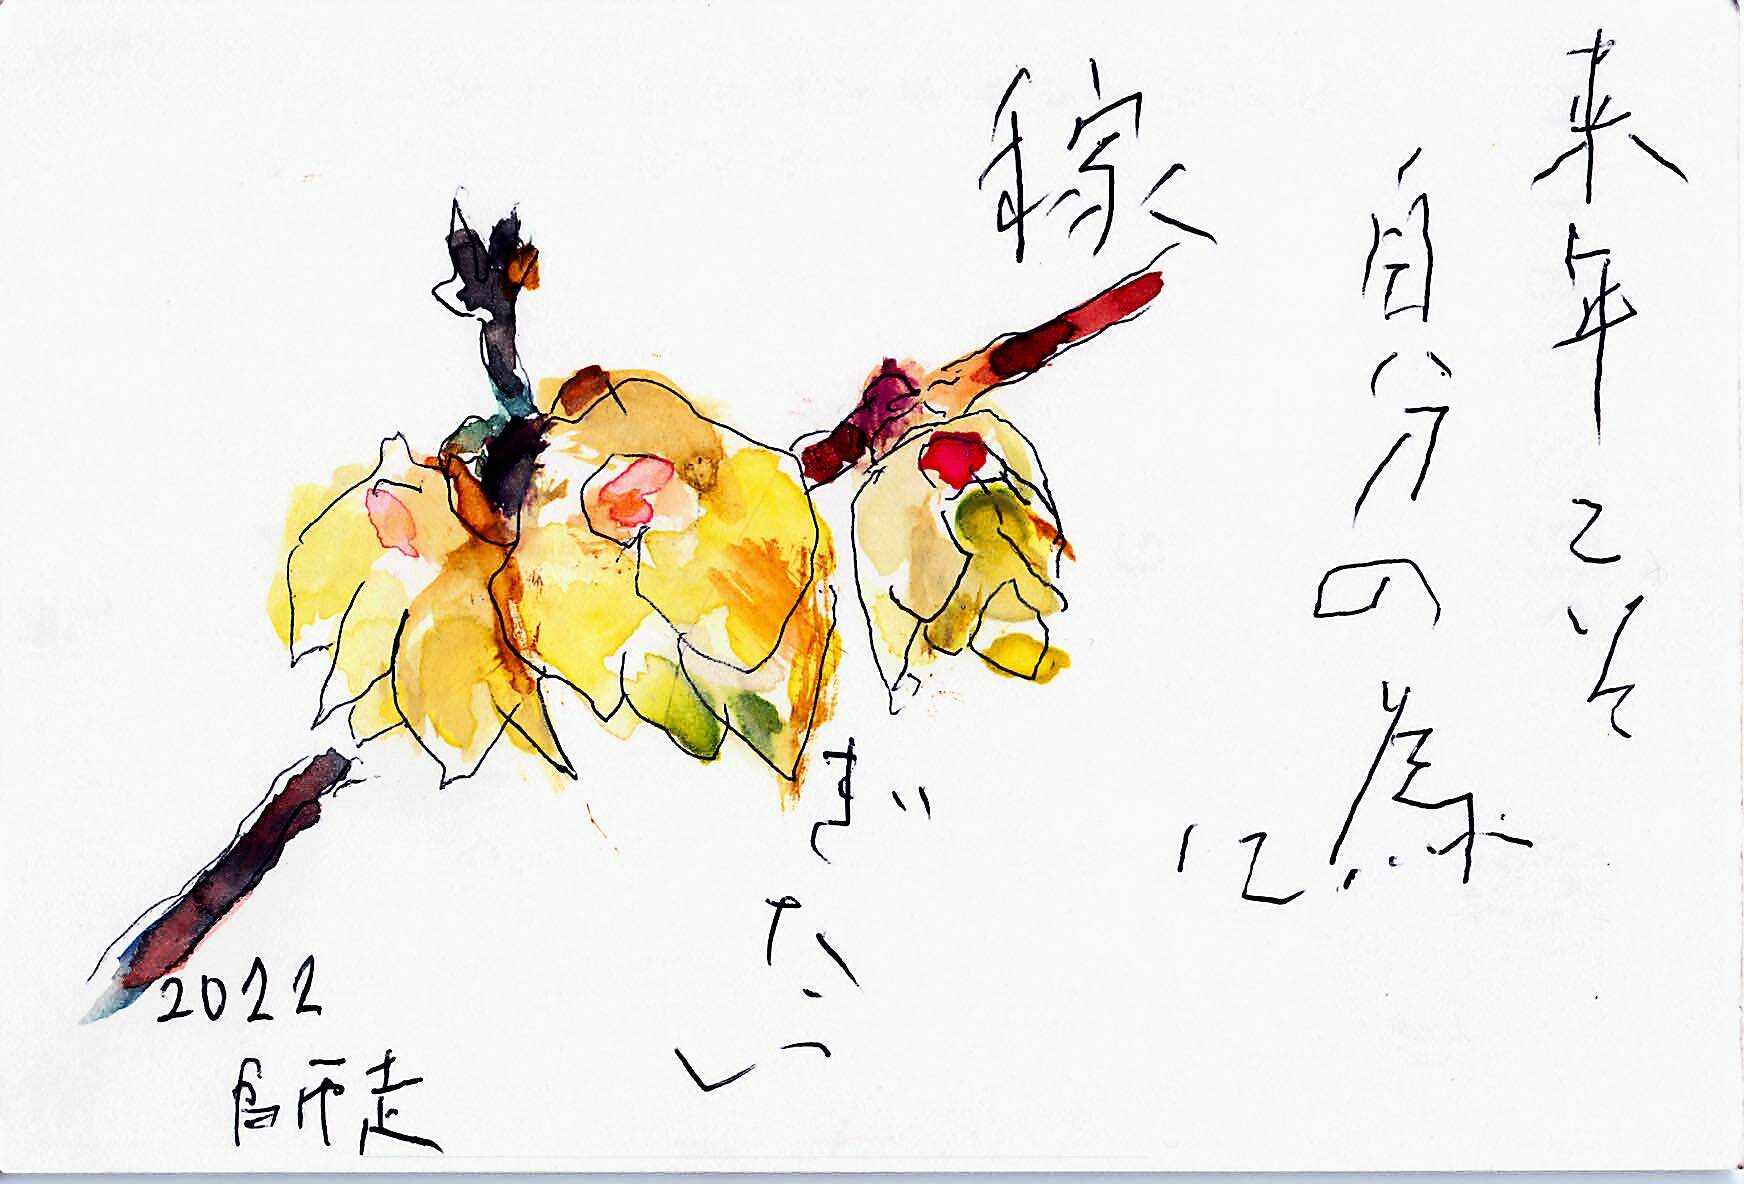 来年こそ
自分の為に
稼ぎたい
2022
師走